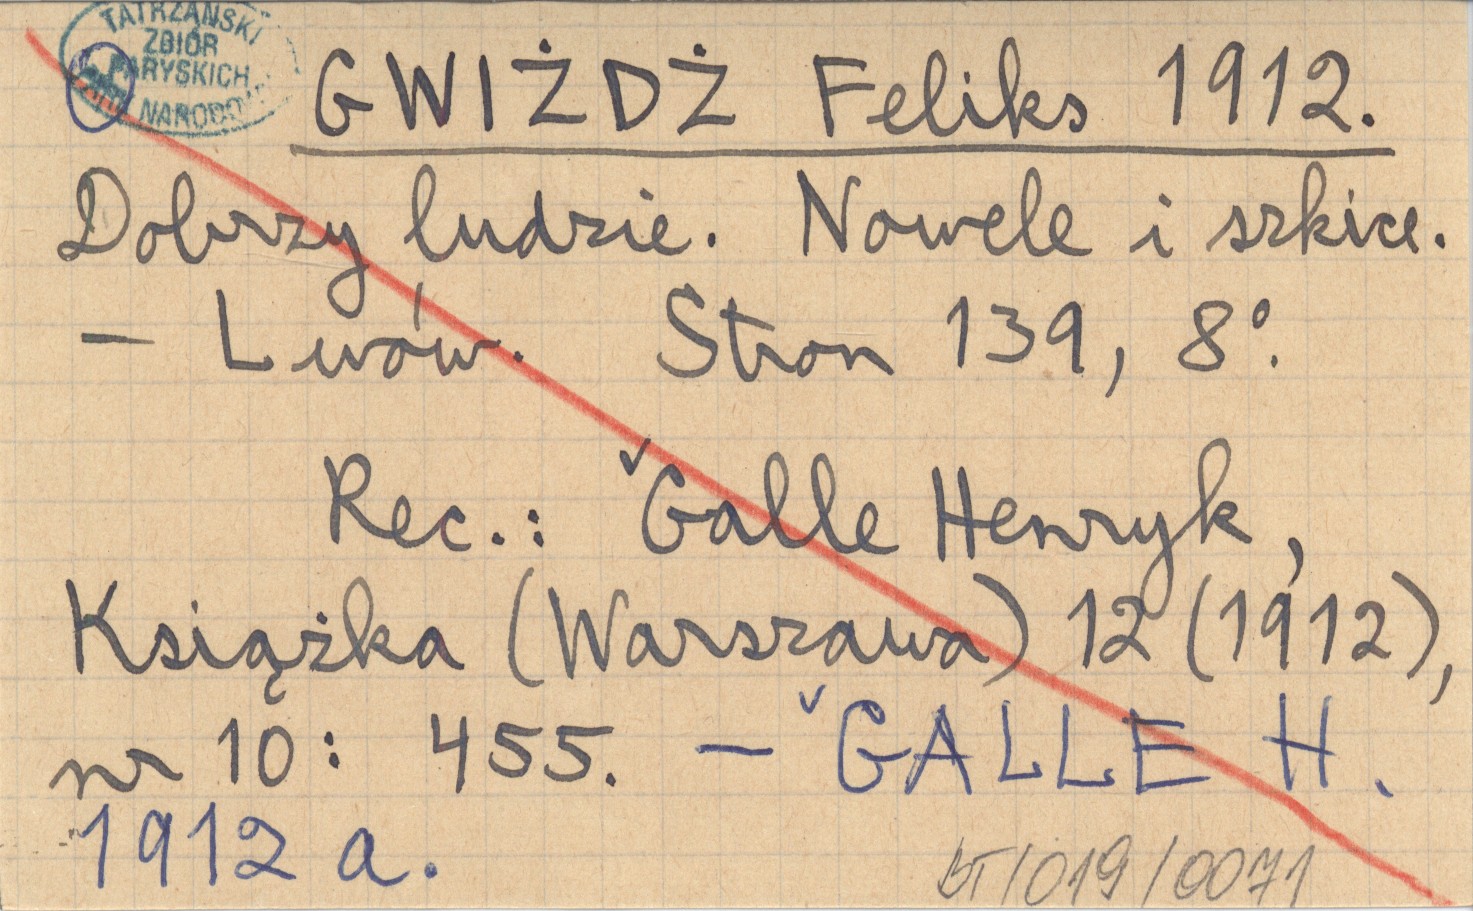 TATRZAŃSKI
ZBIÓR
PARYSKICH
NARODO
GWIŻDŻ Feliks 1912.
Dobrzy ludzie. Nowele i szkice.
— Lwów. Stron 139, 8°.
Rec.: ˇGalle Henryk,
Książka (Warszawa) 12 (1912),
nr 10: 455. — ˇGALLE H.
1912 a.
BT/019/0071